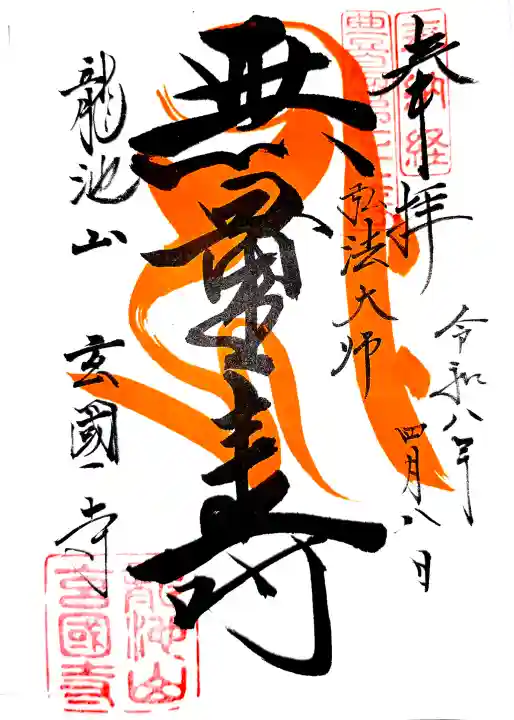 奉拝
令和八年
四月八日
弘法大師
無量壽
龍池山 玄國寺
奉納経
龍池山
玄國寺